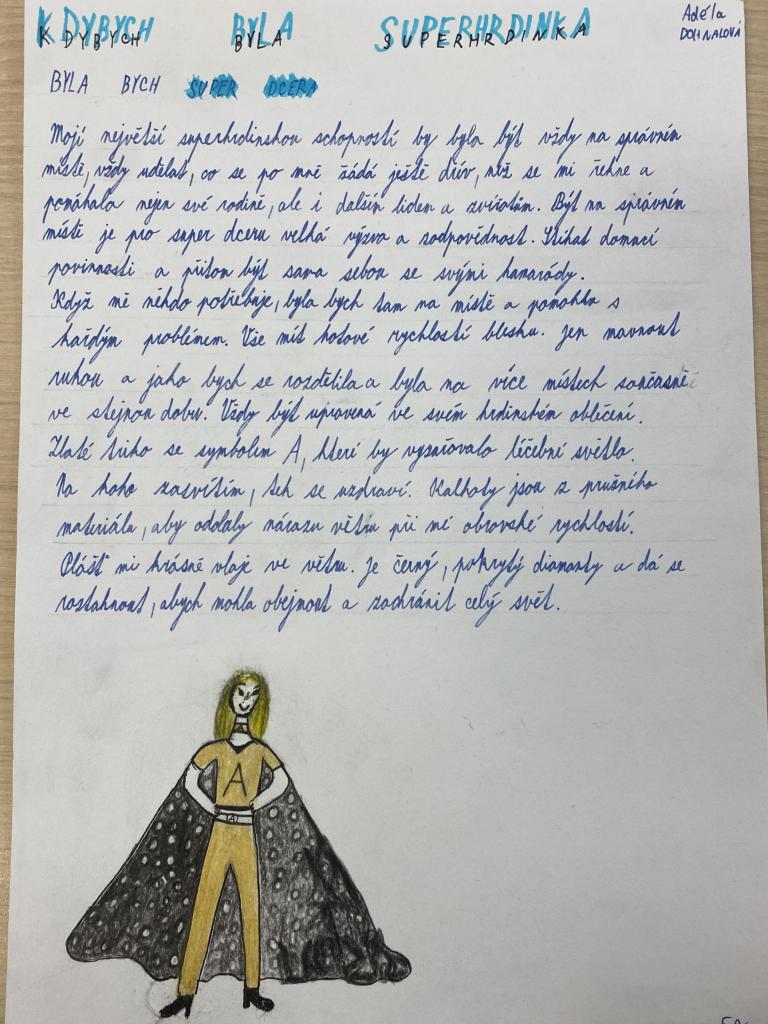 KDYBYCH BYLA SUPERHRDINKA
Adéla
DOHNALOVÁ
BYLA BYCH SUPER DCERA
Mojí největší superhrdinskou schopností by byla být vždy na správném
místě, vždy udělat, co se po mně žádá ještě dřív, než se mi řekne a
pomáhala nejen své rodině, ale i dalším lidem a zvířatům. Být na správném
místě je pro super dceru velká výzva a zodpovědnost. Stíhat domací
povinnosti a přitom být sama sebou se svými kamarády.
Když mě někdo potřebuje, byla bych tam na místě a pomohla s
každým problémem. Vše mít hotové rychlostí blesku. Jen mávnout
rukou a jako bych se rozdělila a byla na více místech současně
ve stejnou dobu. Vždy být upravená ve svém hrdinském oblečení.
Zlaté triko se symbolem A, které by vyzařovalo léčební světlo.
Na koho zasvítím, tek se uzdraví. Kalhoty jsou z pružného
materiálu, aby oddaly nárazu větru při mé obrovské rychlostí.
Plášť mi krásně vlaje ve větru. Je černý, pokrytý diamanty a dá se
roztahnout, abych mohla obejmout a zachránit celý svět.
A